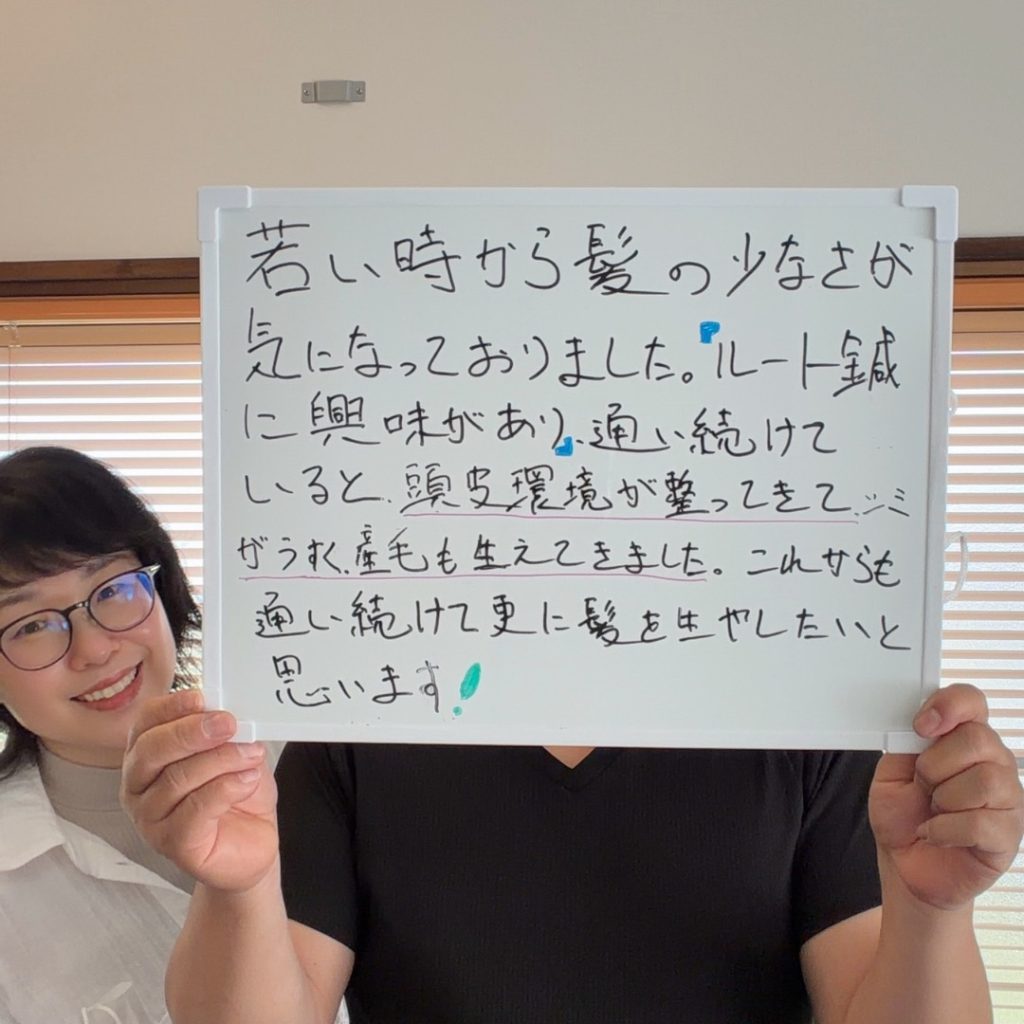 若い時から髪の少なさが
気になっておりました。『ルート鍼
に興味があり』、通い続けて
いると、頭皮環境が整ってきて、シミ
がうすく、産毛も生えてきました。これからも
通い続けて更に髪を生やしたいと
思います!